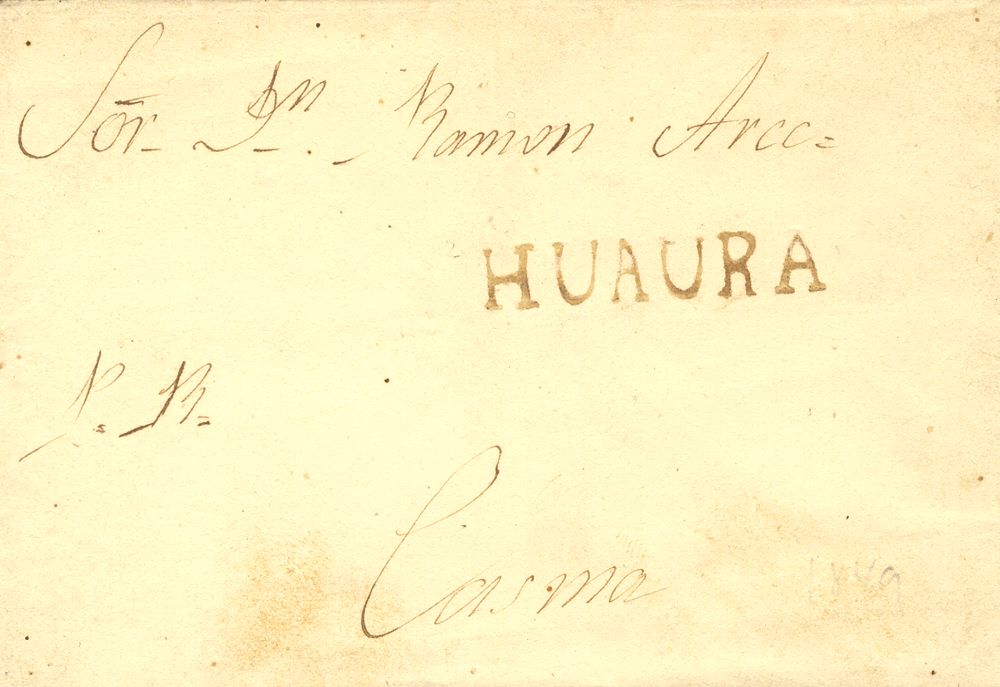 Sōr Dn. Ramon Arce=
HUAURA
P. R=
Casma
1849